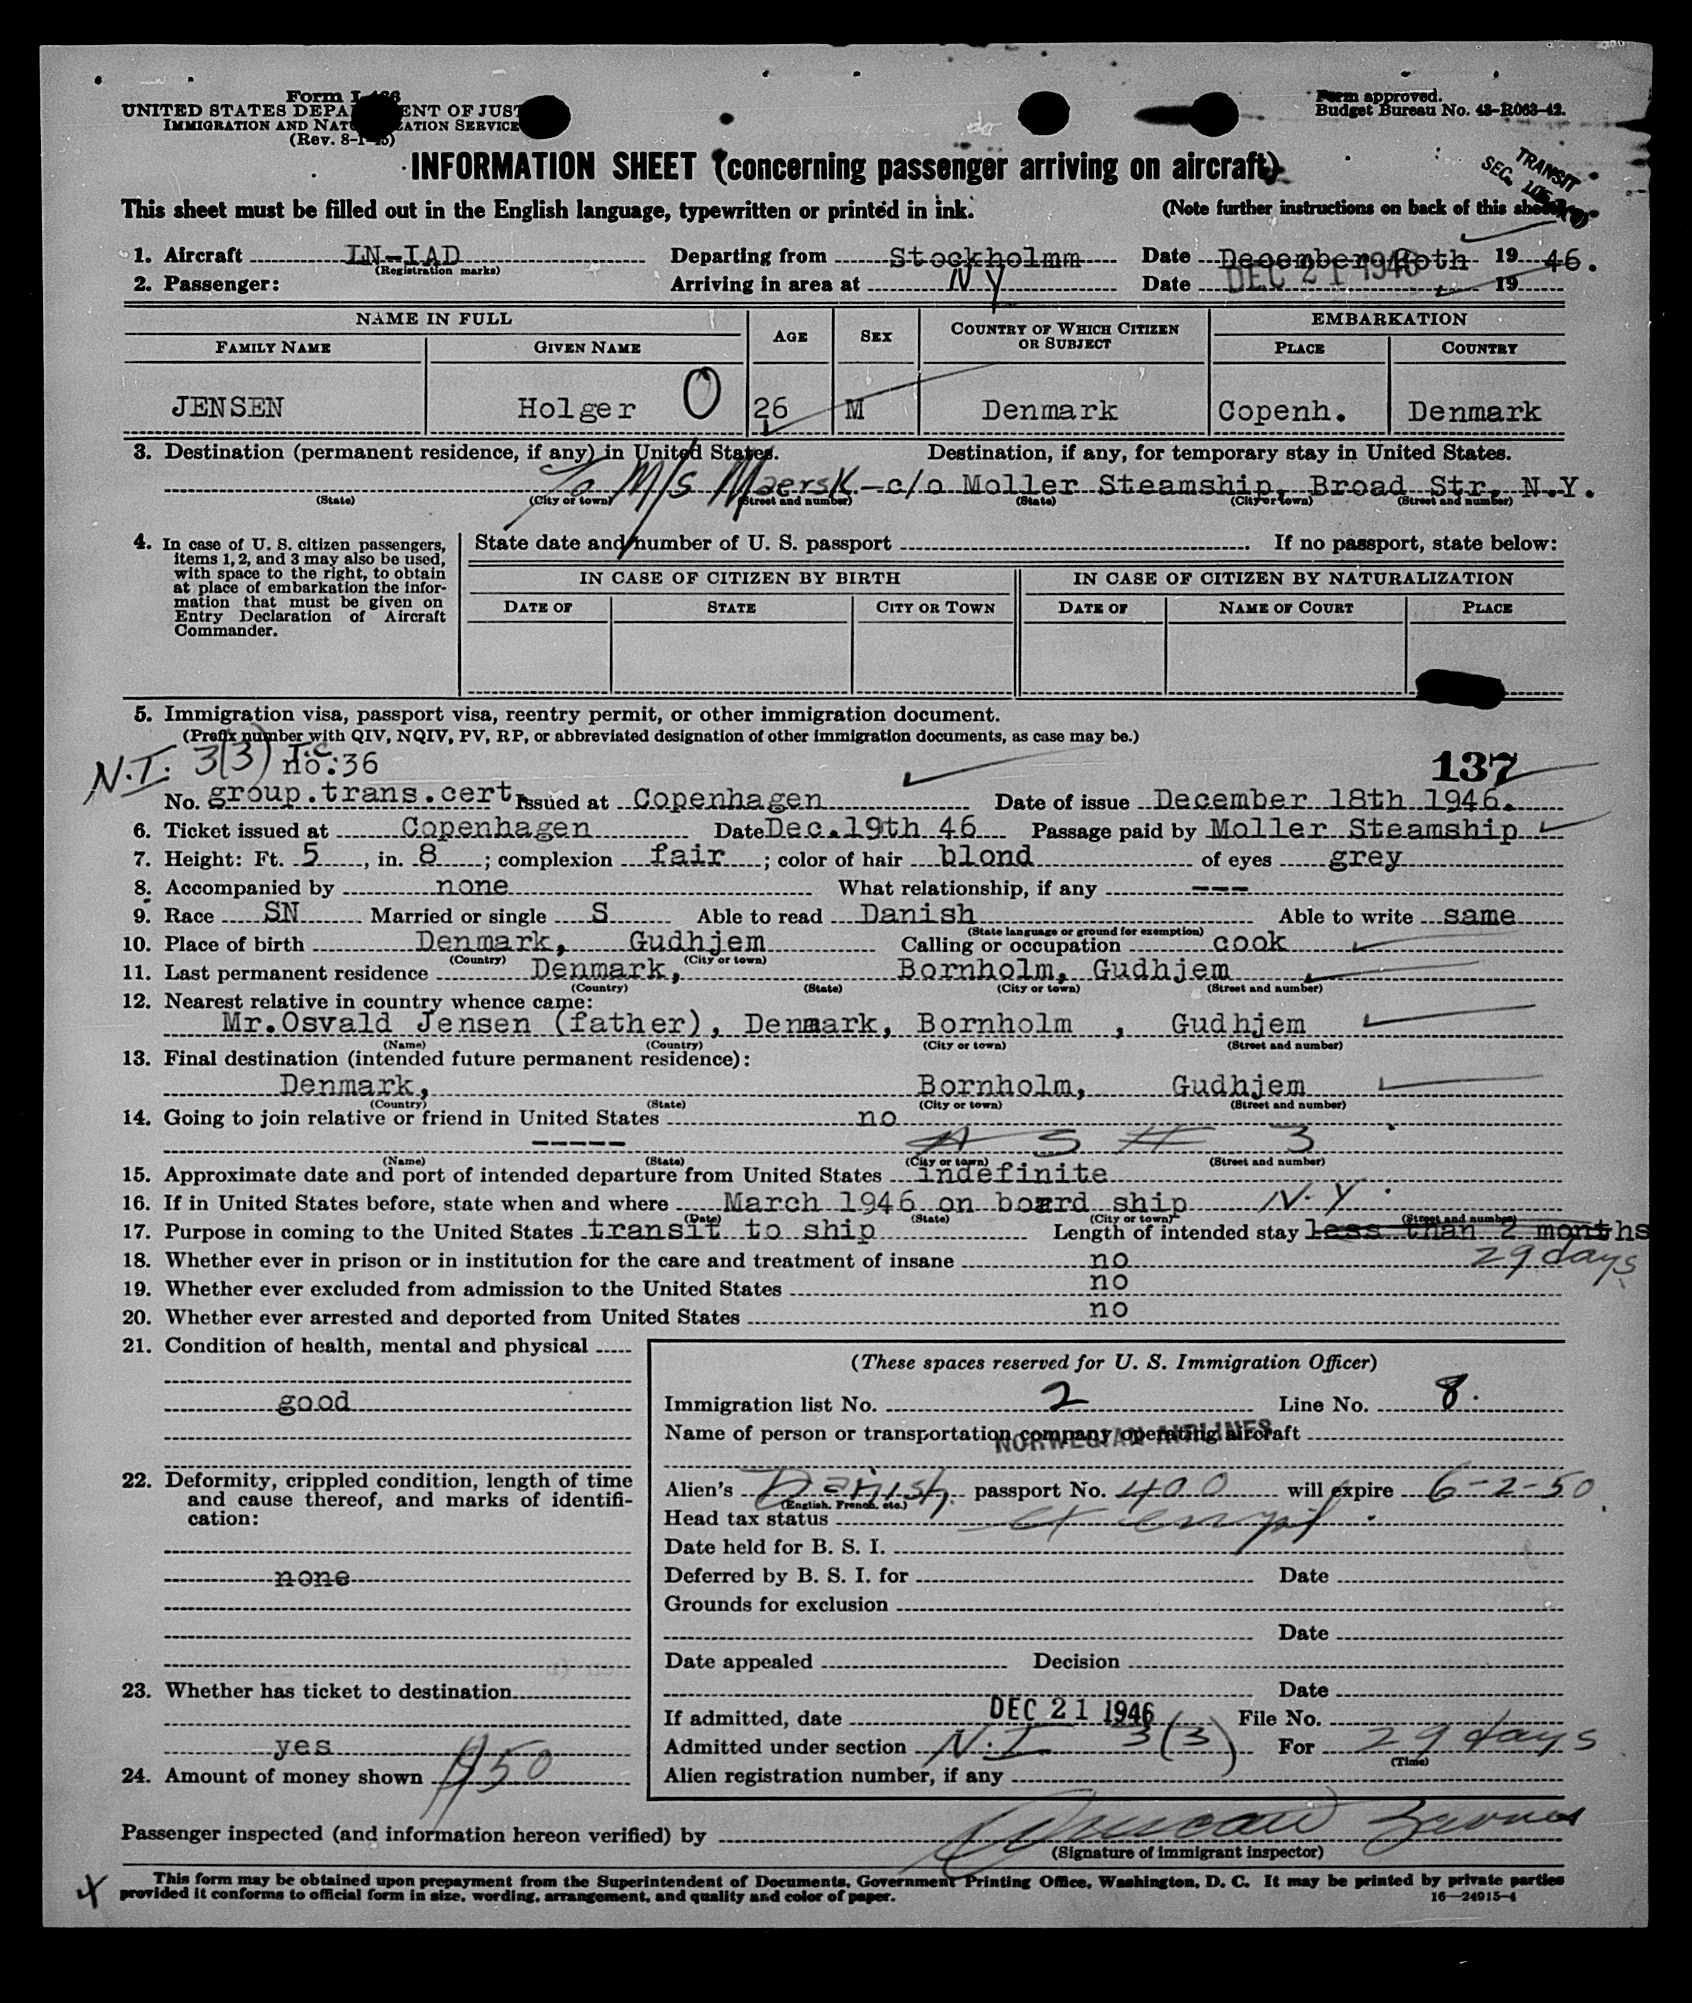 Form I-466
UNITED STATES DEPARTMENT OF JUSTICE
IMMIGRATION AND NATURALIZATION SERVICE
(Rev. 8-1-45)
Form approved.
Budget Bureau No. 43-R063-42.
INFORMATION SHEET (concerning passenger arriving on aircraft)
TRANSIT
SEC.
This sheet must be filled out in the English language, typewritten or printed in ink.
(Note further instructions on back of this sheet)
1. Aircraft LN-IAD Departing from Stockholmm Date December 20th 19 46.
(Registration marks)
2. Passenger: Arriving in area at N Y Date DEC 21 1946 19
NAME IN FULL AGE SEX COUNTRY OF WHICH CITIZEN OR SUBJECT EMBARKATION
FAMILY NAME GIVEN NAME PLACE COUNTRY
JENSEN Holger O 26 M Denmark Copenh. Denmark
3. Destination (permanent residence, if any) in United States. Destination, if any, for temporary stay in United States.
To M/S Maersk - c/o Moller Steamship, Broad Str, N.Y.
(State) (City or town) (Street and number) (State) (City or town) (Street and number)
4. In case of U. S. citizen passengers, items 1, 2, and 3 may also be used, with space to the right, to obtain at place of embarkation the information that must be given on Entry Declaration of Aircraft Commander.
State date and number of U. S. passport If no passport, state below:
IN CASE OF CITIZEN BY BIRTH IN CASE OF CITIZEN BY NATURALIZATION
DATE OF STATE CITY OR TOWN DATE OF NAME OF COURT PLACE
5. Immigration visa, passport visa, reentry permit, or other immigration document.
(Prefix number with QIV, NQIV, PV, RP, or abbreviated designation of other immigration documents, as case may be.)
N.I. 3(3) T.C. no:36 137
No. group.trans.cert. Issued at Copenhagen Date of issue December 18th 1946.
6. Ticket issued at Copenhagen Date Dec.19th 46 Passage paid by Moller Steamship
7. Height: Ft. 5, in. 8; complexion fair; color of hair blond of eyes grey
8. Accompanied by none What relationship, if any ---
9. Race SN Married or single S Able to read Danish Able to write same
(State language or ground for exemption)
10. Place of birth Denmark, Gudhjem Calling or occupation cook
(Country) (City or town)
11. Last permanent residence Denmark, Bornholm, Gudhjem
(Country) (State) (City or town) (Street and number)
12. Nearest relative in country whence came:
Mr.Osvald Jensen (father), Denmark, Bornholm , Gudhjem
(Name) (Country) (City or town) (Street and number)
13. Final destination (intended future permanent residence):
Denmark, Bornholm, Gudhjem
(Country) (State) (City or town) (Street and number)
14. Going to join relative or friend in United States no
----- A S # 3
(Name) (State) (City or town) (Street and number)
15. Approximate date and port of intended departure from United States indefinite
16. If in United States before, state when and where March 1946 on board ship N.Y.
(Date) (State) (City or town) (Street and number)
17. Purpose in coming to the United States transit to ship Length of intended stay less than 2 months
29 days
18. Whether ever in prison or in institution for the care and treatment of insane no
19. Whether ever excluded from admission to the United States no
20. Whether ever arrested and deported from United States no
21. Condition of health, mental and physical
good
22. Deformity, crippled condition, length of time and cause thereof, and marks of identification:
none
23. Whether has ticket to destination
yes
24. Amount of money shown $50
(These spaces reserved for U. S. Immigration Officer)
Immigration list No. 2 Line No. 8.
Name of person or transportation company operating aircraft
NORWEGIAN AIRLINES
Alien's Danish passport No. 400 will expire 6-2-50
(English, French, etc.)
Head tax status exempt
Date held for B. S. I.
Deferred by B. S. I. for Date
Grounds for exclusion
Date
Date appealed Decision
Date
If admitted, date DEC 21 1946 File No.
Admitted under section N.I 3(3) For 29 days
(Time)
Alien registration number, if any
Passenger inspected (and information hereon verified) by
(Signature of immigrant inspector)
This form may be obtained upon prepayment from the Superintendent of Documents, Government Printing Office, Washington, D. C. It may be printed by private parties
provided it conforms to official form in size, wording, arrangement, and quality and color of paper.
16—24915-4